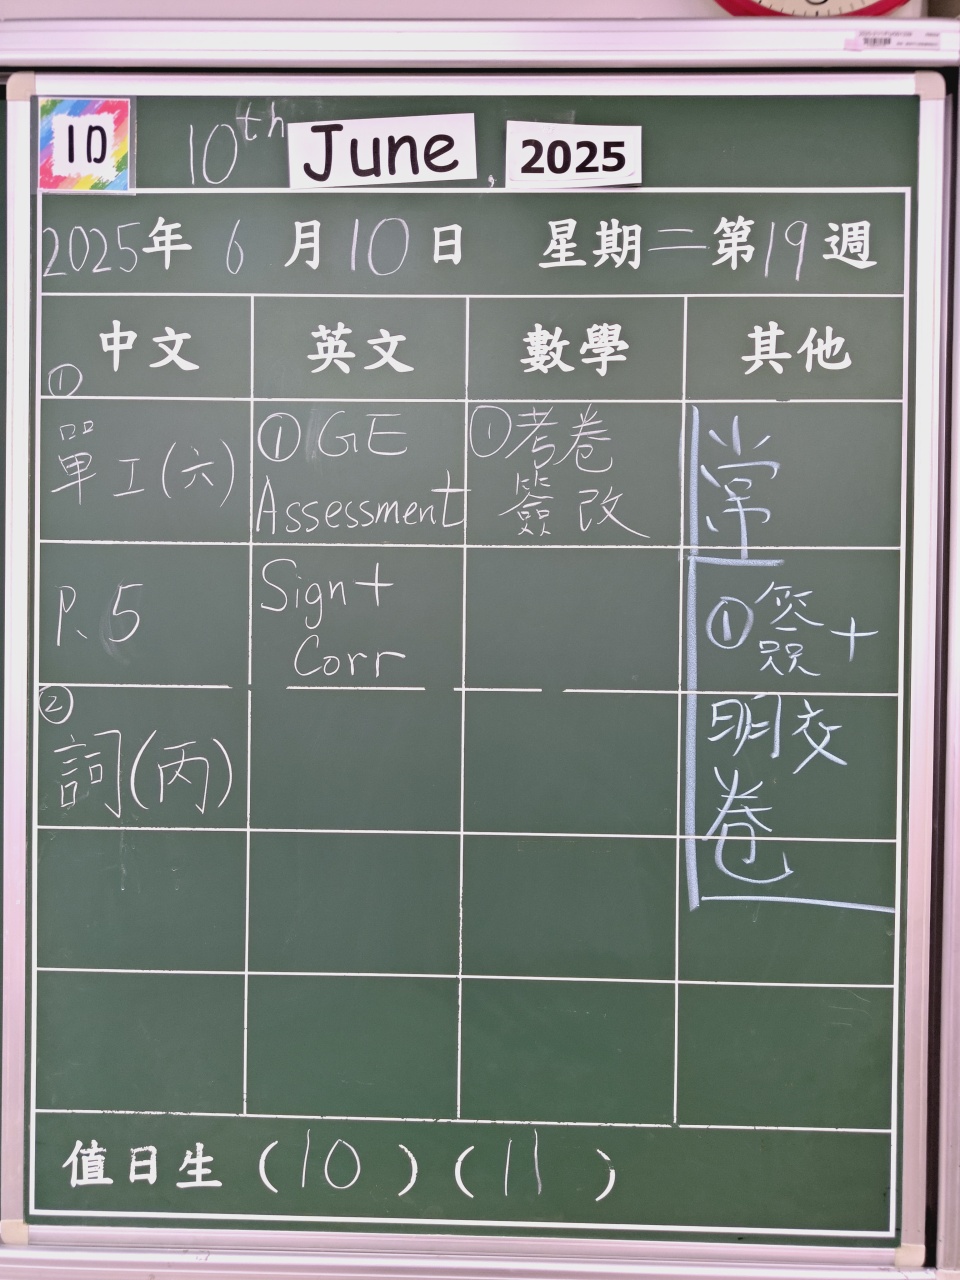 1D
10th June, 2025
2025年 6月10日 星期二第19週
中文 英文 數學 其他
①
單工(六)
P.5
②
詞(丙)
①GE
Assessment
Sign+
Corr
①考卷
簽改
常
①簽+
明交
卷
值日生(10)(11)